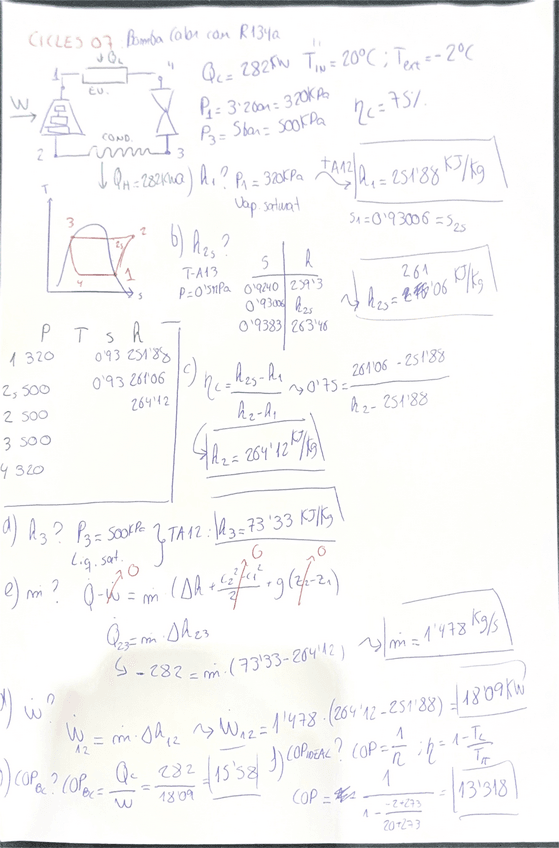 CICLES 07 Bomba Calor con R134a
Q_C = 282KW T_IN = 20°C ; T_ext = -2°C
P_1 = 3'2bar = 320KPa η_C = 75%
P_3 = 5bar = 500KPa
Q_L
1 EV. 4
W
2 COND. 3
Q_H = 282KW
a) h_1? P_1 = 320KPa TA12 h_1 = 251'88 KJ/Kg
Vap. saturat
S_1 = 0'93006 = S_2s
T
3 2s 2
4 1
s
b) h_2s?
T-A13
P = 0'5MPa
S h
0'9240 259'3
0'93006 h_2s
0'9383 263'46
h_2s = 261'06 KJ/Kg
P T s h
1 320 0'93 251'88
2s 500 0'93 261'06
2 500 264'12
3 500
4 320
c) η_C = (h_2s - h_1)/(h_2 - h_1) 0'75 = (261'06 - 251'88)/(h_2 - 251'88)
h_2 = 264'12 KJ/Kg
d) h_3? P_3 = 500KPa
Liq. sat. } TA12: h_3 = 73'33 KJ/Kg
e) ṁ? Q̇ - Ẇ = ṁ (Δh + (c_2² - c_1²)/2 + g(z_2 - z_1)) 0 0 0
Q̇_23 = ṁ · Δh_23
-282 = ṁ · (73'33 - 264'12) ṁ = 1'478 Kg/s
Ẇ?
Ẇ_12 = ṁ · Δh_12 Ẇ_12 = 1'478 · (264'12 - 251'88) = 18'09KW
COP_BC? COP_BC = Q_C/W = 282/18'09 = 15'58
COP_IDEAL? COP = 1/η ; η = 1 -
COP = 1/(1 - (-2+273)/(20+273)) = 13'318